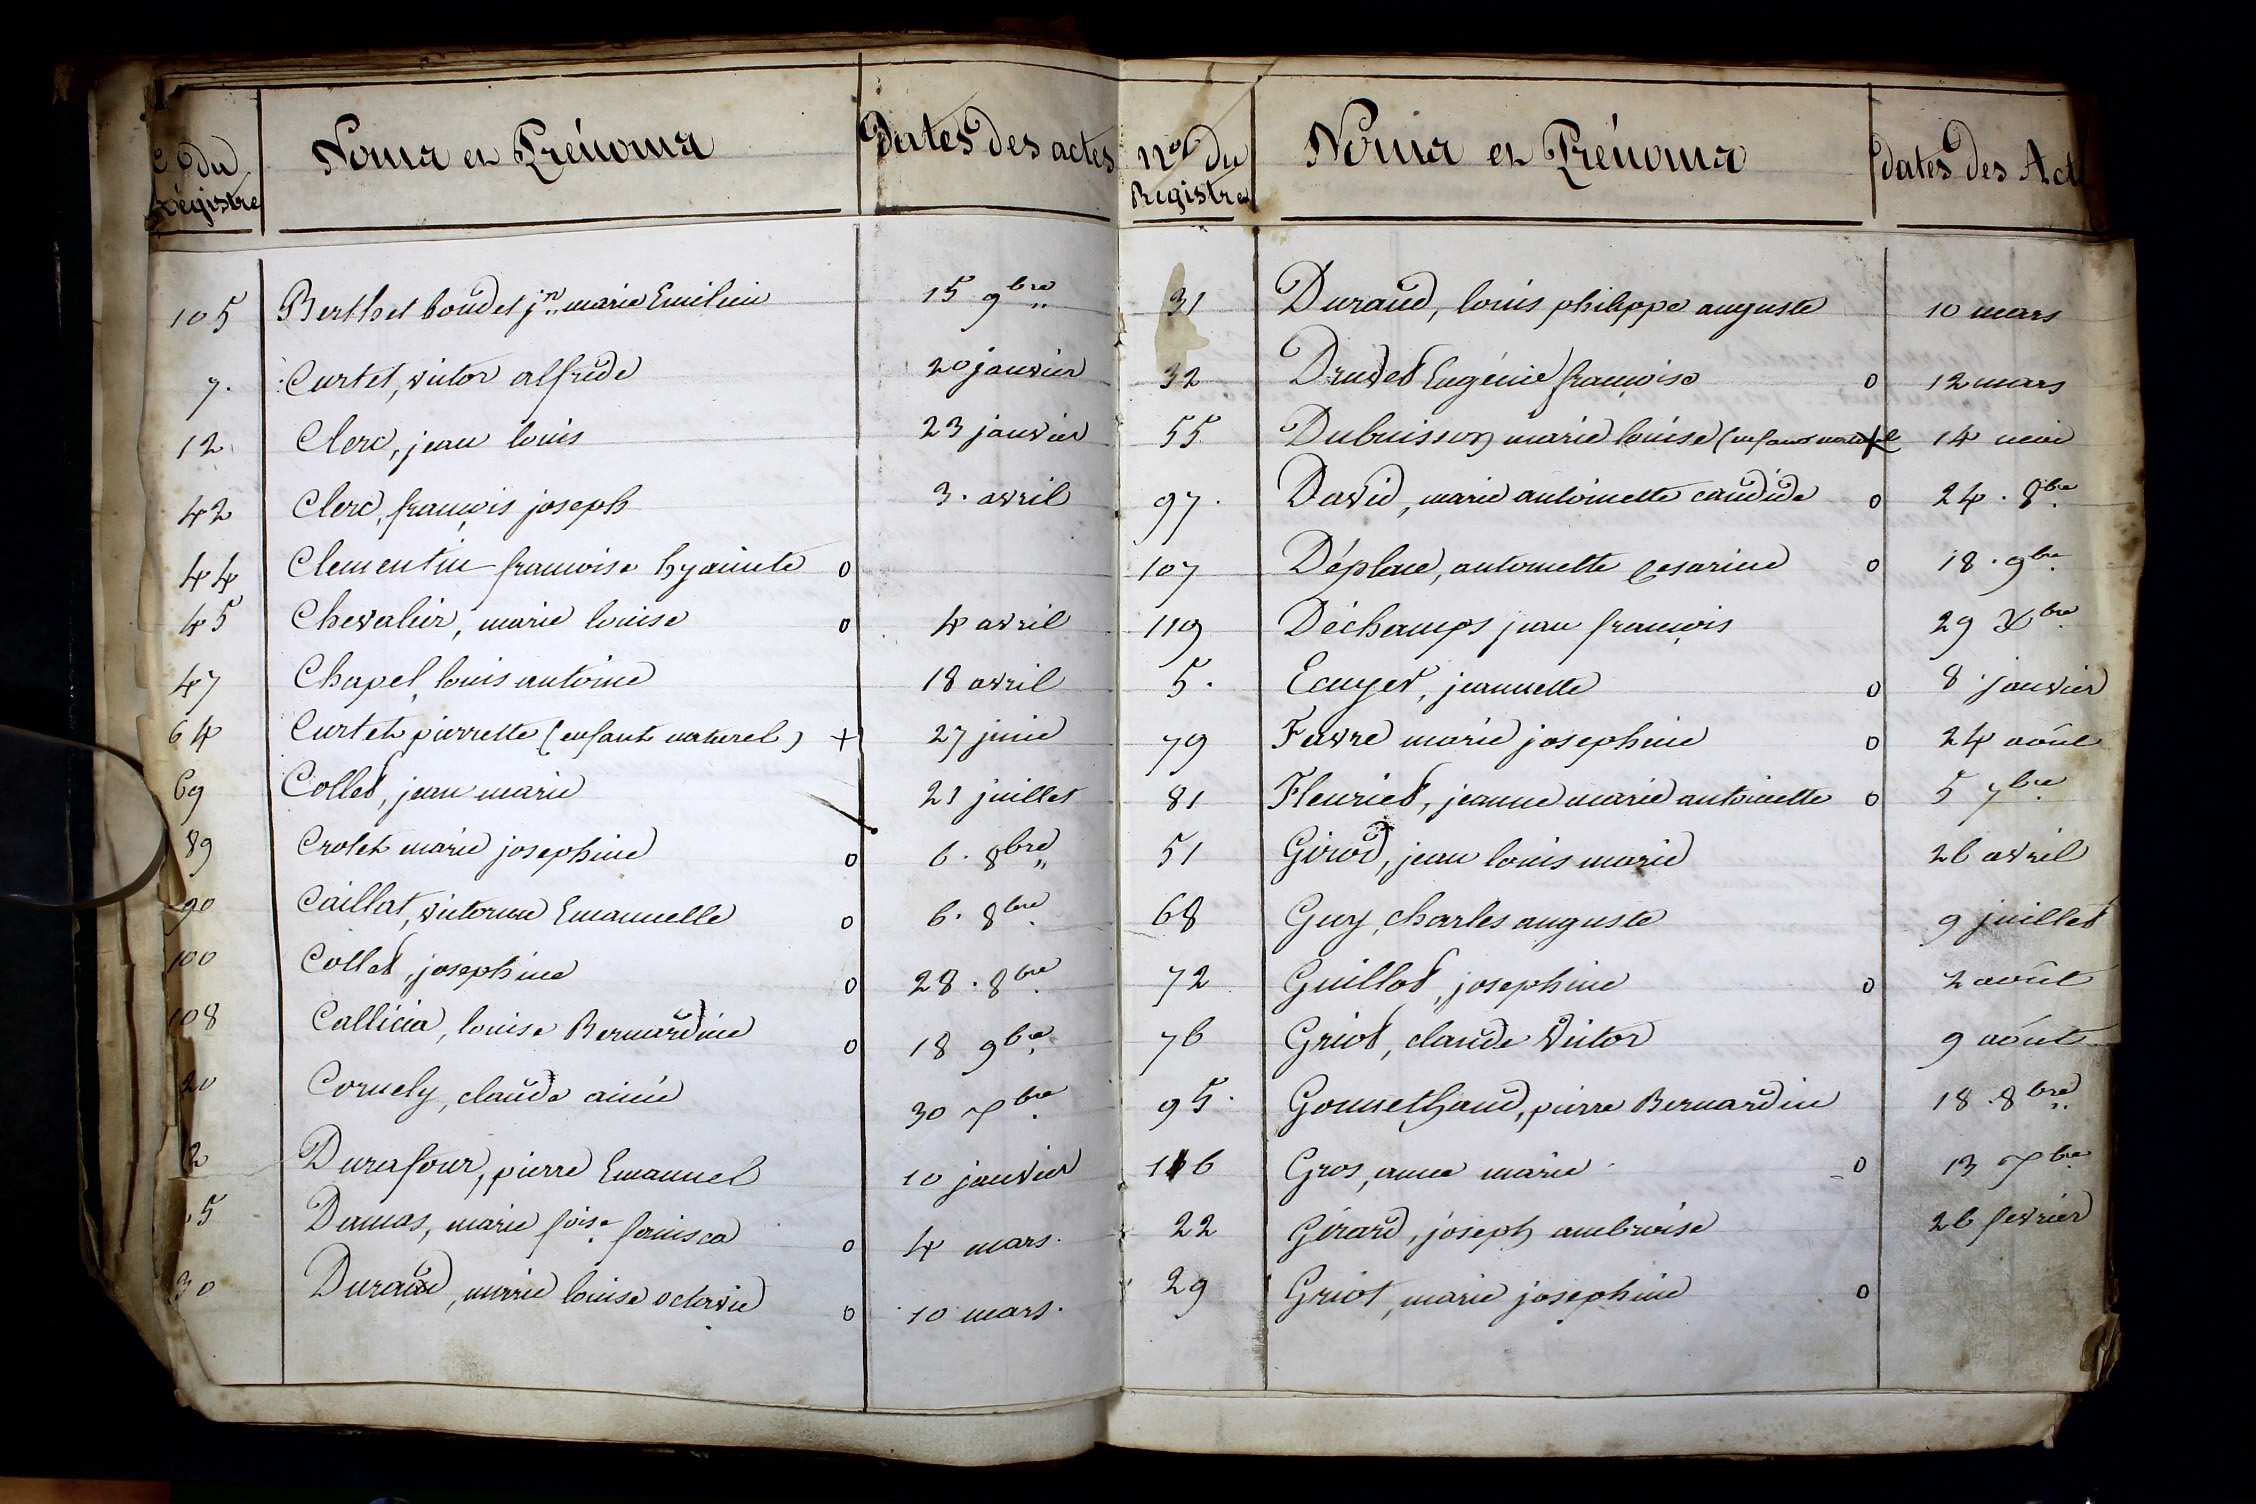 du Noms et Prénoms Dates des actes
Régistre
105 Berthet boudet jn marie Emilien 15 9bre
7. Curtet, victor alfride 20 janvier
12 Clerc, jean louis 23 janvier
42 Clerc, françois joseph 3. avril
44 Clementine francoise hyacinte o
45 Chevalier, marie louise o 4 avril
47 Chapel, louis antoine 18 avril
64 Curtet pierrette (enfant naturel) + 27 juin
69 Collet, jean marie 21 juillet
89 Crolet marie josephine o 6. 8bre
90 Caillat, victorine Emanuelle o 6. 8bre
100 Collet, josephine o 28. 8bre
108 Callicia, louise Bernardine o 18 9bre
20 Cornely, claude aimé 30 Xbre
2 Durafour, pierre Emanuel 10 janvier
5 Dumas, marie foise o 4 mars.
30 Durand, marie louise octavie o 10 mars.
nos du Noms et Prénoms dates des Act
Registre
31 Durand, louis philippe auguste 10 mars
32 Druet Eugénie françoise o 12 mars
55 Dubuisson marie louise (enfant naturel + 14 mai
97. David, marie antoinette candide o 24. 8bre
107 Déplace, antoinette Cesarine o 18. 9bre
119 Déchamps jean françois 29 Xbre
5. Ecuyer, jeannette o 8 janvier
79 Favre marie josephine o 24 août
81 Fleuriet, jeanne marie antoinette o 5 7bre
51 Girod, jean louis marie 26 avril
68 Guy, charles auguste 9 juillet
72 Guillot, josephine o 2 août
76 Griot, claude Victor 9 août
95. Gonnethaud, pierre Bernardin 18. 8bre
116 Gros, anne marie o 13 Xbre
22 Girard, joseph ambroise 26 fevrier
29 Griot, marie josephine o